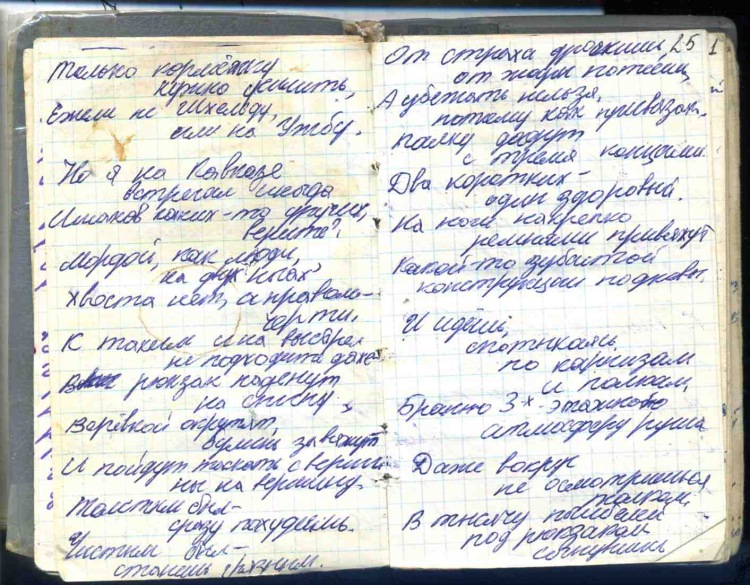 Только кормёжку
нужно усилить,
Ежели не Шхельду,
или на Ушбу.
Но я на Кавказе
встречал иногда
Ишаков каких-то других,
верите?
Мордой, как люди,
на двух ногах
Хвоста нет, а прямо
черти.
К таким и на выстрел
не подходите даже
рюкзак наденут
на спину,
Верёвкой окрутят,
завяжут
И пойдут таскать с верши
ны на вершину.
Толстым был -
сразу похудеешь.
Чистым был -
станешь грязным.
25 1
От страха дрожишь,
от жары потеешь,
А убежать нельзя,
потому как привязан.
Палку дадут
с тремя концами
Два коротких -
один здоровый.
На ноги накрепко
ремнями привяжут
Какой-то зубастой
конструкции подковы.
И идёшь,
спотыкаясь
по карнизам
и полкам,
Бранью 3-х этажной
атмосферу руша
Даже вокруг
не осмотришься
толком,
В тысячу погибелей
под рюкзаком
согнувшись